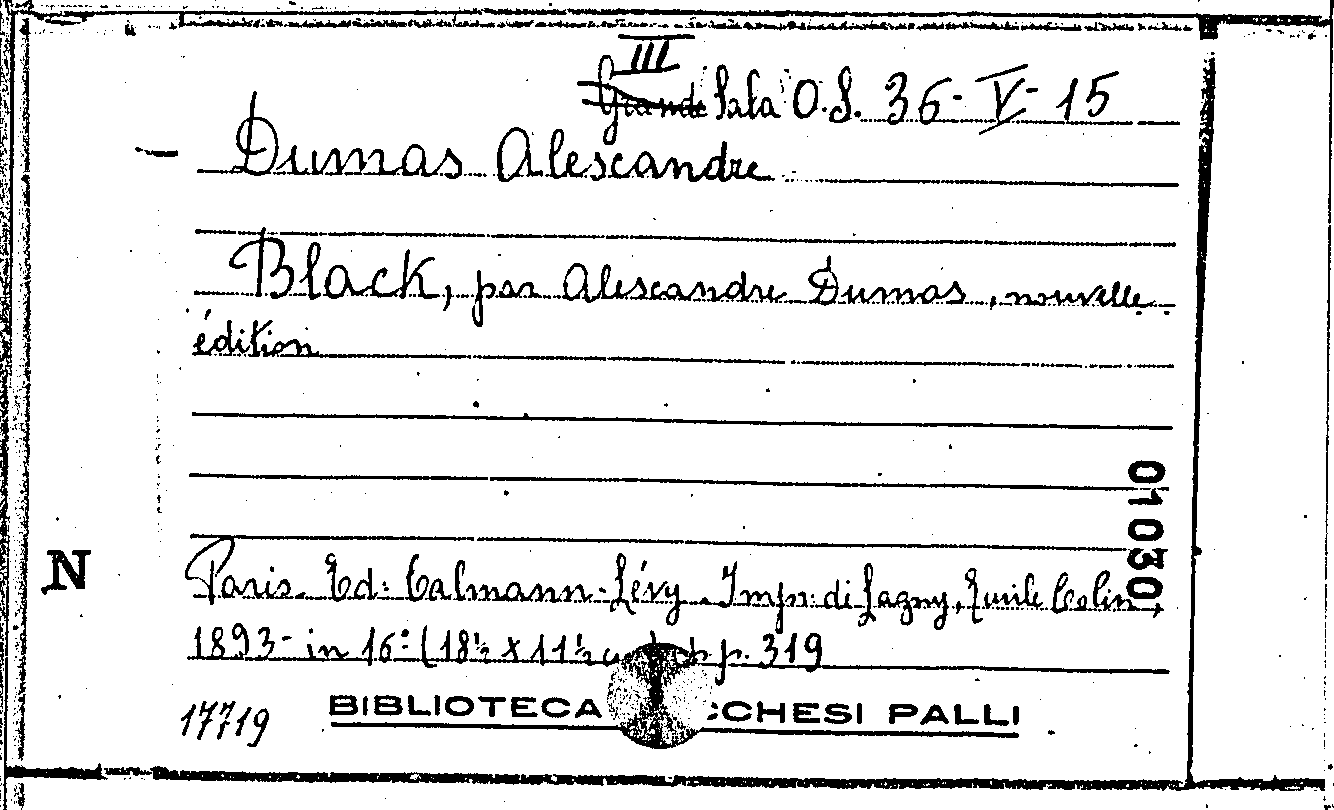 III
Grande Sala O.S. 36-V-15
Dumas Alexandre
Black, par Alexandre Dumas, nouvelle
édition
01030
N
Paris. Ed: Calmann-Lévy. Impr. di Lagny, Emile Colin,
1893- in 16° (18½ x 11½ p. 319
17719 BIBLIOTECA CCHESI PALLI